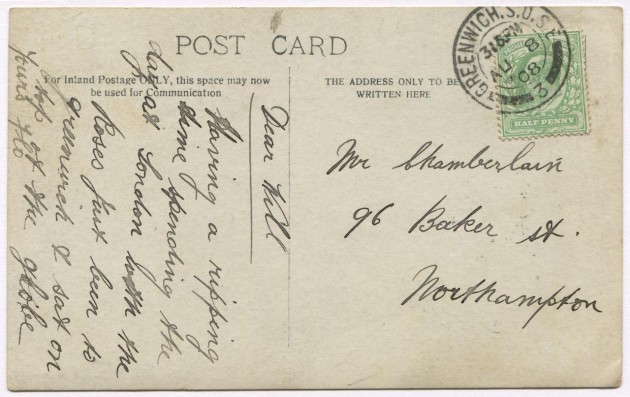 POST CARD
For Inland Postage ONLY, this space may now
be used for Communication
THE ADDRESS ONLY TO BE
WRITTEN HERE
GREENWICH. S.O. S.E.
3.15 PM
AU 8
08
3
HALF PENNY
Dear Will
Having a ripping
time spending the
day at London with the
Roses just been to
greenwich & sat on
top of the globe
yours Flo
Mr Chamberlain
96 Baker st.
Northampton